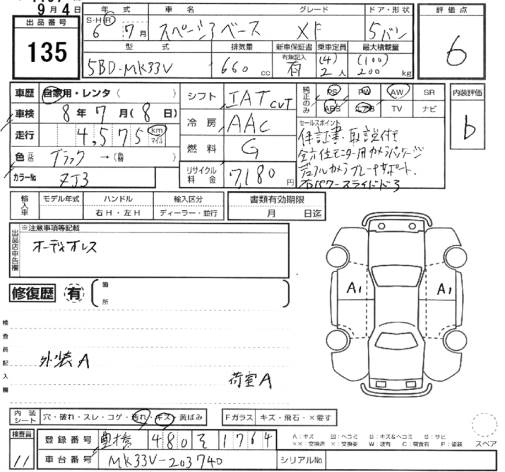 9月4日
出品番号
135
年式 車名 グレード ドア・形状
S・H・R 6年 7月 スペーシアベース XF 5バン
型式 排気量 新車保証書 乗車定員 最大積載量
5BD-MK33V 660cc 有無記入 有 (4) 2人 (100) 200kg
評価点
6
車歴 自家用・レンタ ( )
車検 8年7月(8日)
走行 4,575 km マイル
色 ブラック →
カラーNo. ZJ3
シフト IAT CVT
冷房 AAC
燃料 G
リサイクル料金 7,180円
純正のみ PS PW AW SR
ABS エアB TV ナビ
セールスポイント
保証書・取説付き
全方位モニター用カメラパッケージ
デュアルカメラブレーキサポート
右パワースライドドア
内装評価
b
輸入車 モデル年式 ハンドル 輸入区分
右H・左H ディーラー・並行
書類有効期限
月 日迄
出品店申告欄
※注意事項等記載
オーディオレス
修復歴 有 箇所
検査員記入欄
外装A
荷室A
A1 A1
内装シート 穴・破れ・スレ・コゲ・汚れ・キズ・黄ばみ
Fガラス キズ・飛石・×要す
検査員
11
登録番号 豊橋 480 を 1764
車台番号 MK33V-203740
シリアルNo.
スペア